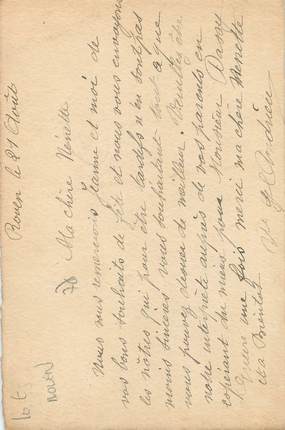 Rouen le 21 Août
Ma chère Nénette
Nous vous remercions Jeanne et moi de
vos bons souhaits de fête et nous vous envoyons
les nôtres qui pour être tardifs n'en sont pas
moins sincères vous souhaitant tout ce que
vous pouvez désirer de meilleur. Veuillez être
notre interprète auprès de vos parents en
espérant du mieux pour Monsieur
Encore une fois merci ma chère Nénette
et à bientôt
Rouen